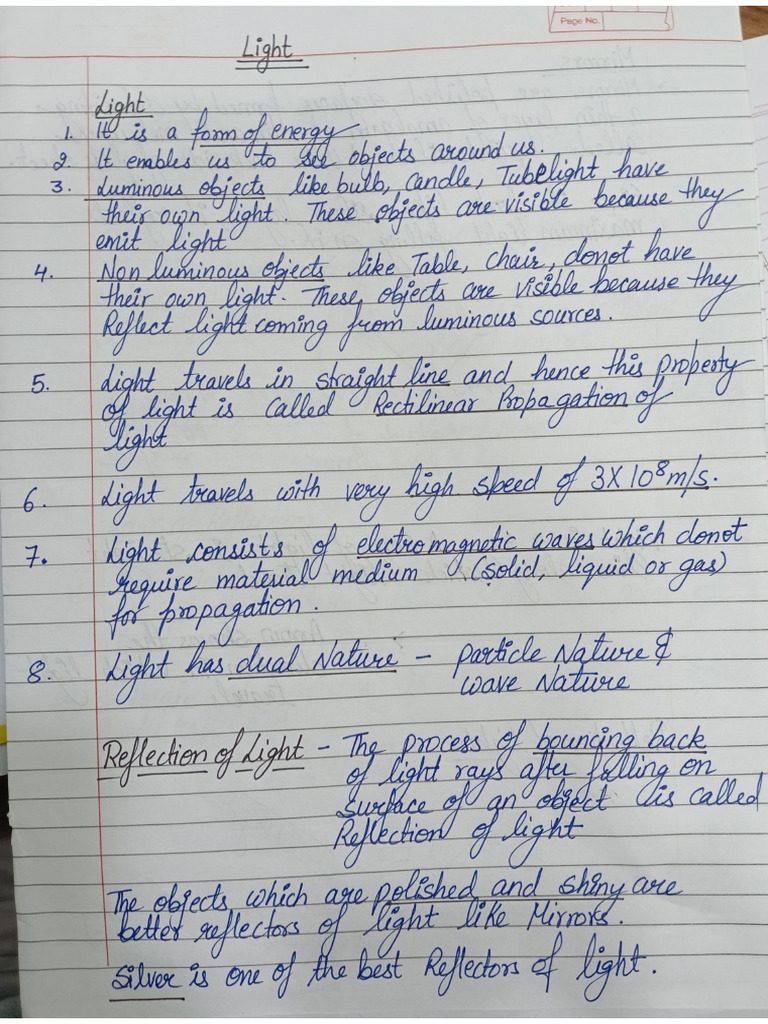 Page No.
Light
Light
1. It is a form of energy
2. It enables us to see objects around us.
3. Luminous objects like bulb, Candle, Tubelight have
their own light. These objects are visible because they
emit light
4. Non luminous objects like Table, Chair, donot have
their own light. These objects are visible because they
Reflect light coming from luminous sources.
5. Light travels in straight line and hence this property
of light is called Rectilinear Propagation of
light
6. Light travels with very high speed of 3X10⁸m/s.
7. Light consists of electromagnetic waves which donot
require material medium (solid, liquid or gas)
for propagation.
8. Light has dual Nature - particle Nature &
wave Nature
Reflection of Light - The process of bouncing back
of light rays after falling on
surface of an object is called
Reflection of light
The objects which are polished and shiny are
better reflectors of light like Mirrors.
Silver is one of the best Reflectors of light.